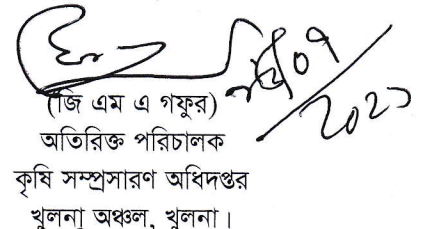 (জি এম এ গফুর)
অতিরিক্ত পরিচালক
কৃষি সম্প্রসারণ অধিদপ্তর
খুলনা অঞ্চল, খুলনা।